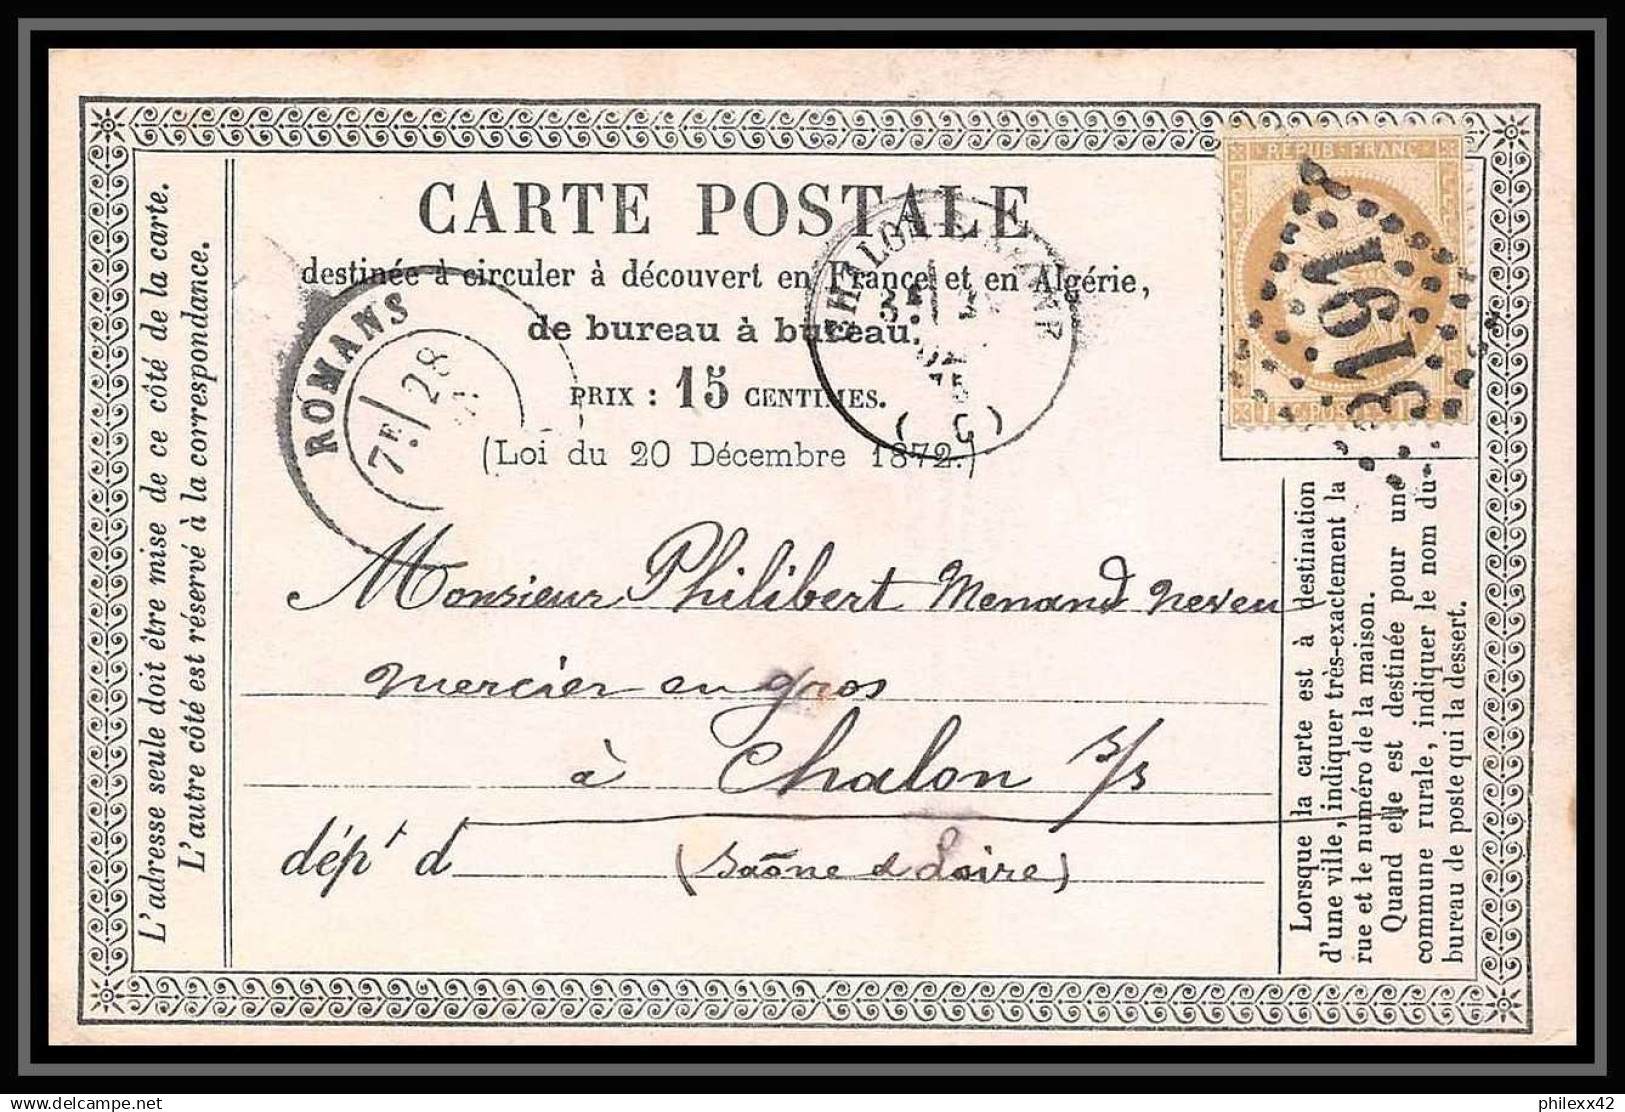 CARTE POSTALE
destinée à circuler à découvert en France et en Algérie,
de bureau à bureau.
PRIX : 15 CENTIMES.
(Loi du 20 Décembre 1872.)
L'adresse seule doit être mise de ce côté de la carte.
L'autre côté est réservé à la correspondance.
ROMANS
7E 28
CHALON
75
REPUB FRANC
POST
3191
Monsieur Philibert Menand neveu
mercier en gros
à Chalon s/s
dépt d
(Saône & Loire)
Lorsque la carte est à destination
d'une ville, indiquer très-exactement la
rue et le numéro de la maison.
Quand elle est destinée pour une
commune rurale, indiquer le nom du
bureau de poste qui la dessert.
www.delcampe.net
philexx42